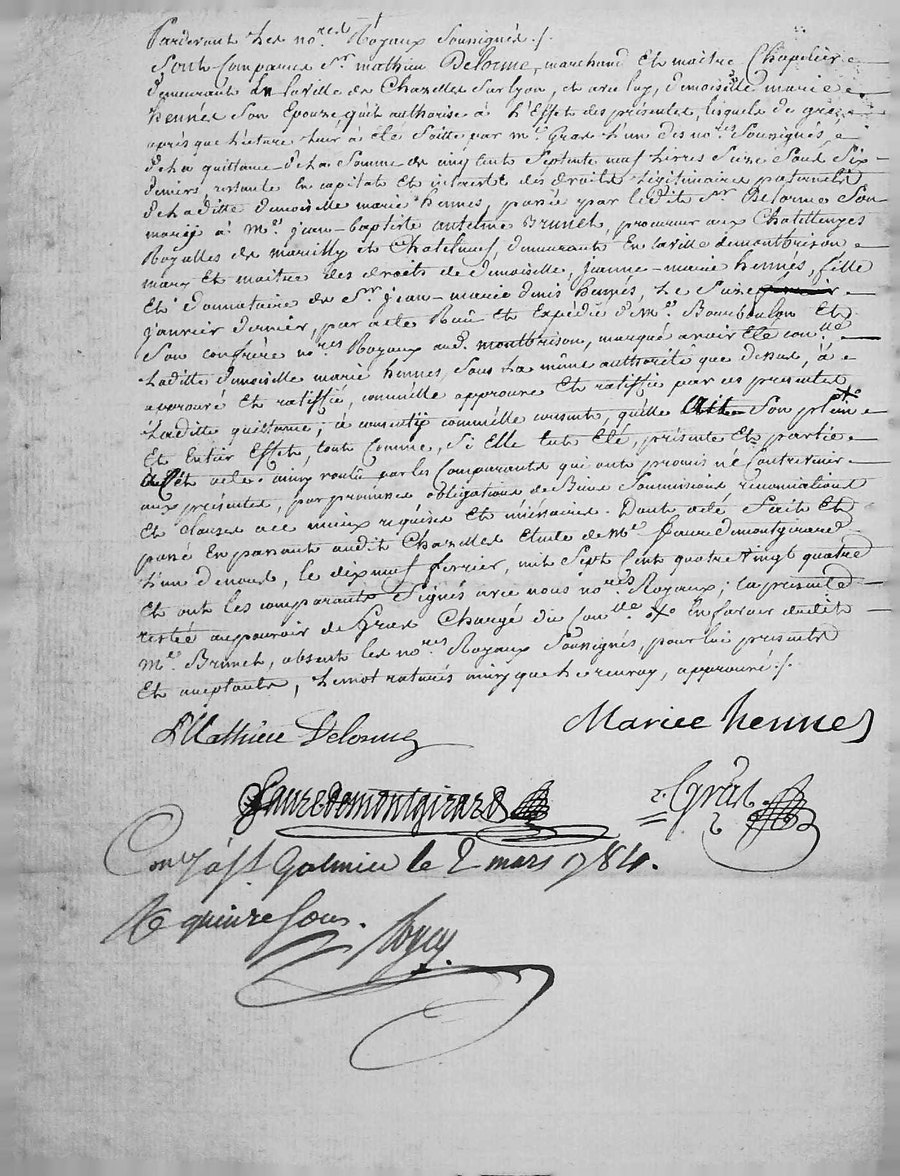 Pardevant Les no.res Royaux Soussignés ./.
Sont Comparus Sr. mathieu Delorme, marchand Et maitre Chapelier
demeurant En la ville de Chazelles Sur lyon, et avec luy, demoiselle marie
hennés Son Epouze, qu'il authorise à L'Effet des présentes, lesquels de gré
après que Lecture Leur à Eté faitte par me. Gras L'un des no.res Soussignés,
de La quittance de La Somme de cinq cent Septente neuf Livres Seize Sous Six
deniers, restante En capital Et interest des droits Légitimaire paternels
de Laditte demoiselle marie hennes, passée par Ledit Sr. Delorme Son
mary à Me. jean-baptiste antelme Brunel, procureur aux Chatellenyes
Royalles de marilly et Chatelneuf, demeurant En la ville de montbrison
mary Et maitre des droits de demoiselle, jeanne-marie hennés, fille
Et donnataire de Sr. jean-marie denis hennes, Le Seize
janvier dernier, par acte Reçû Et Expédié de Me. Bourboulon Et
Son confrère no.res Royaux aud. montbrison, marqué avoir Eté con.lle
Laditte demoiselle marie hennes, Sous La même authorité que dessus, à
approuvé Et ratiffié, comm'elle approuve Et ratiffie par ces présentes
Laditte quittance, à consenty comm'elle consent, qu'elle Ait Son plein
Et Entier Effet, tout comme, Si Elle Eut Eté, présente Et partie
acte ainsy voulu par les Comparants qui ont promis ne Contrevenir
aux présentes, par promesse obligations de Biens Soumissions renonciations
Et clauses acc mieux requises Et nécessaires. Dont acté fait Et
passé En passant audit Chazelles Etude de Me. faure de montgirard
L'un de nous, le dix neuf février, mil Sept Cent quatre Vingt quatre
Et ont les comparants Signés avec nous no.res Royaux; La presente
restée au pouvoir de Gras Chargé du Con.lle En faveur dudit
Me. Brunel, absent Les no.res Royaux Soussignés, pour lui presents
Et aceptants, Le mot raturés ainsy que Le renvoy, approuvé ./.
Mathieu Delorme
Mariee hennes
Fauredemontgirard
Gras
Con.lé à St. Galmier le 2 mars 1784.
R quinze Sous.